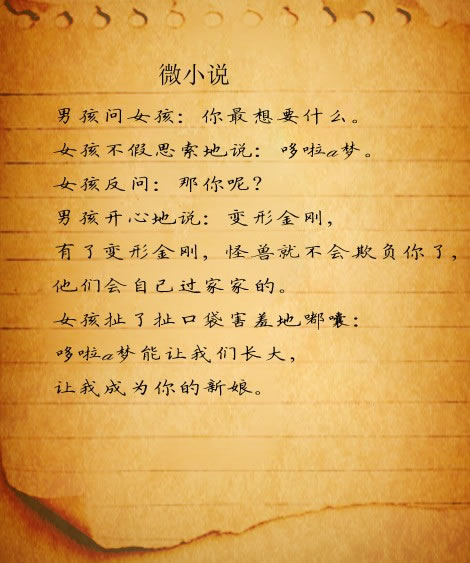 微小说
男孩问女孩：你最想要什么。
女孩不假思索地说：哆啦a梦。
女孩反问：那你呢？
男孩开心地说：变形金刚，
有了变形金刚，怪兽就不会欺负你了，
他们会自己过家家的。
女孩扯了扯口袋害羞地嘟囔：
哆啦a梦能让我们长大，
让我成为你的新娘。